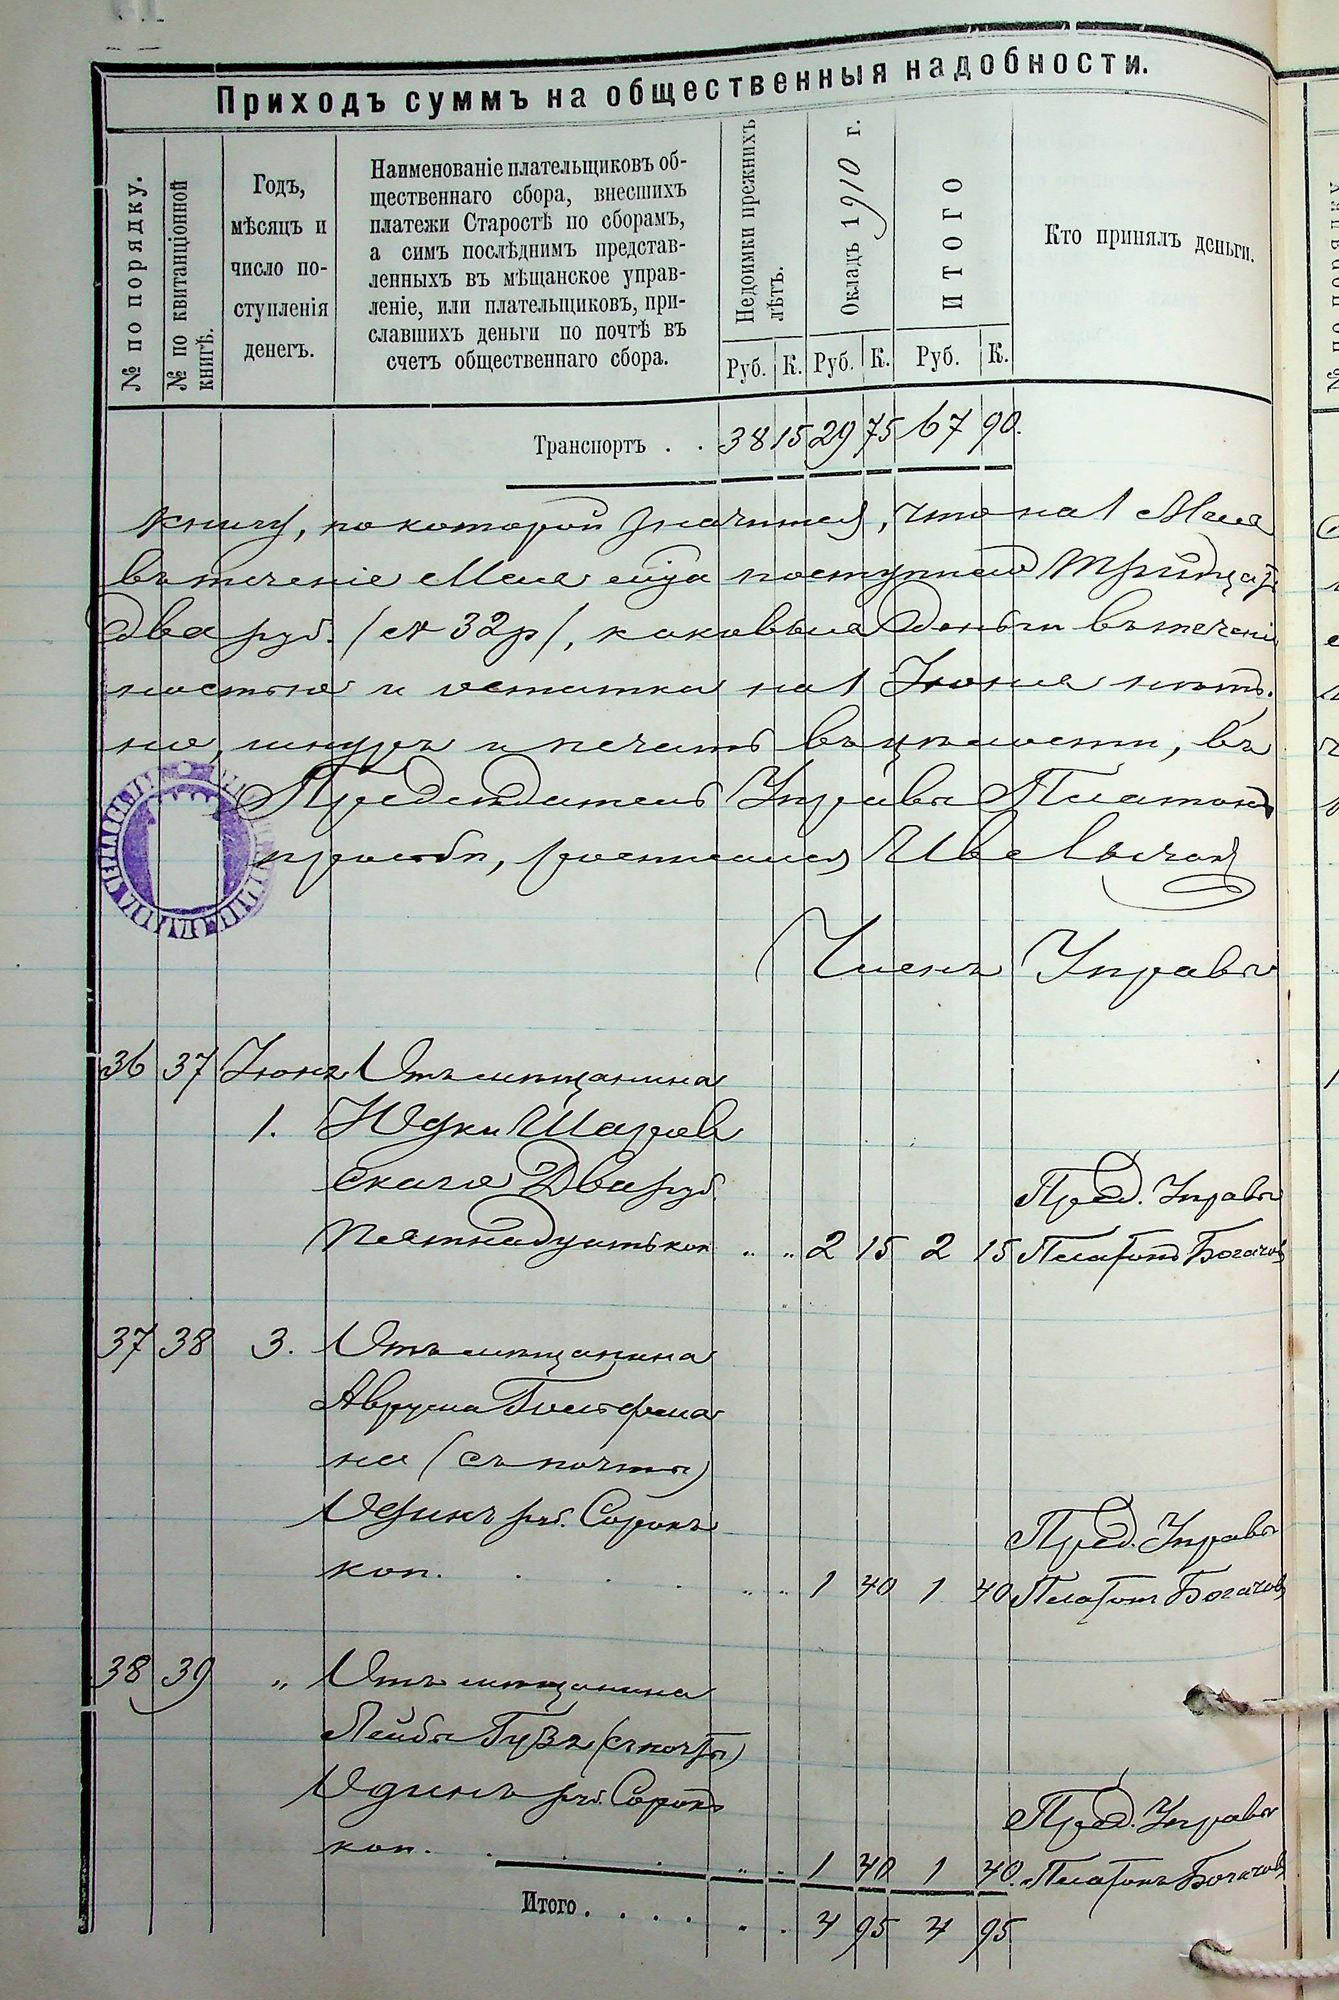 Приходъ суммъ на общественныя надобности.
№ по порядку.
№ по квитанціонной книгѣ.
Годъ,
мѣсяцъ и
число по-
ступленія
денегъ.
Наименованіе плательщиковъ об-
щественнаго сбора, внесшихъ
платежи Старостѣ по сборамъ,
а симъ послѣднимъ представ-
ленныхъ въ мѣщанское управ-
леніе, или плательщиковъ, при-
славшихъ деньги по почтѣ въ
счетъ общественнаго сбора.
Недоимки прежнихъ лѣтъ.
Окладъ 1910 г.
ИТОГО
Кто принялъ деньги.
Руб. К. Руб. К. Руб. К.
Транспортъ . . 38 15 29 75 67 90.
книгу, по которой значится, что на 1 Мая
въ теченіе Мая м-ца поступило Тридцать
два руб. (32 р), каковыя деньги въ теченіе
ностью и остатка на 1 Іюня нѣтъ.
но, шнуръ и печать въ цѣлости, въ
Предсѣдатель Управы Платонъ
просьби, росписался
Членъ Управы
36 37 Іюнь Отъ мѣщанина
1. Юдки Шаров
скаго Два руб.
Пятнадцать коп „ „ 2 15 2 15
Пред. Управы
Платонъ Богачов
37 38 3. Отъ мѣщанина
Аврума Гольдфма
на (съ почты)
Одинъ руб. Сорокъ
коп. . . . „ „ 1 40 1 40
Пред. Управы
Платонъ Богачов
38 39 „ Отъ мѣщанина
Лейбы Гузъ (съ почты)
Одинъ руб. Сорокъ
коп. . . . „ „ 1 40 1 40.
Пред. Управы
Платонъ Богачов
Итого . . . . . . 4 95 4 95